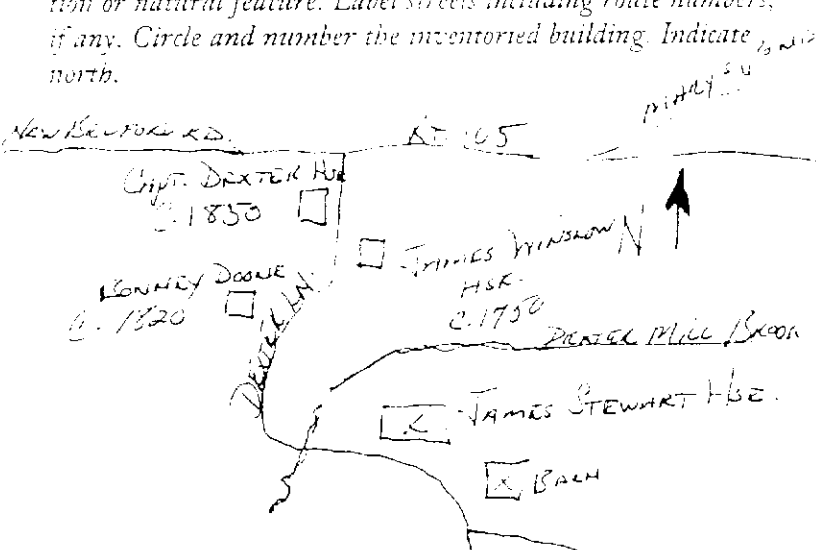 tion or natural feature. Label streets including route numbers,
if any. Circle and number the inventoried building. Indicate
north.
MARY'S
NEW BEDFORD RD.
RT 105
CAPT. DEXTER HSE
C. 1850
JAMES WINSLOW
HSE.
C. 1750
N
BONNEY DOONE
C. 1820
DEXTER LN.
DEXTER MILL BROOK
JAMES STEWART HSE.
X BARN